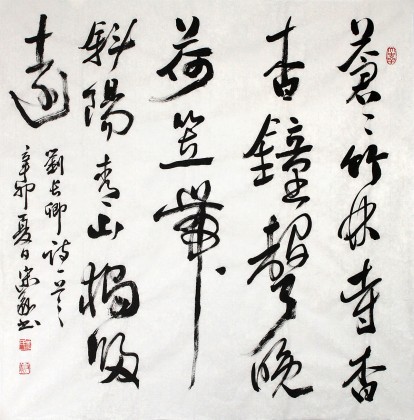 蒼〻竹林寺杳
杳鐘聲晚
荷笠帶
斜陽青山獨歸
遠
劉長卿詩一首
辛卯夏日 書